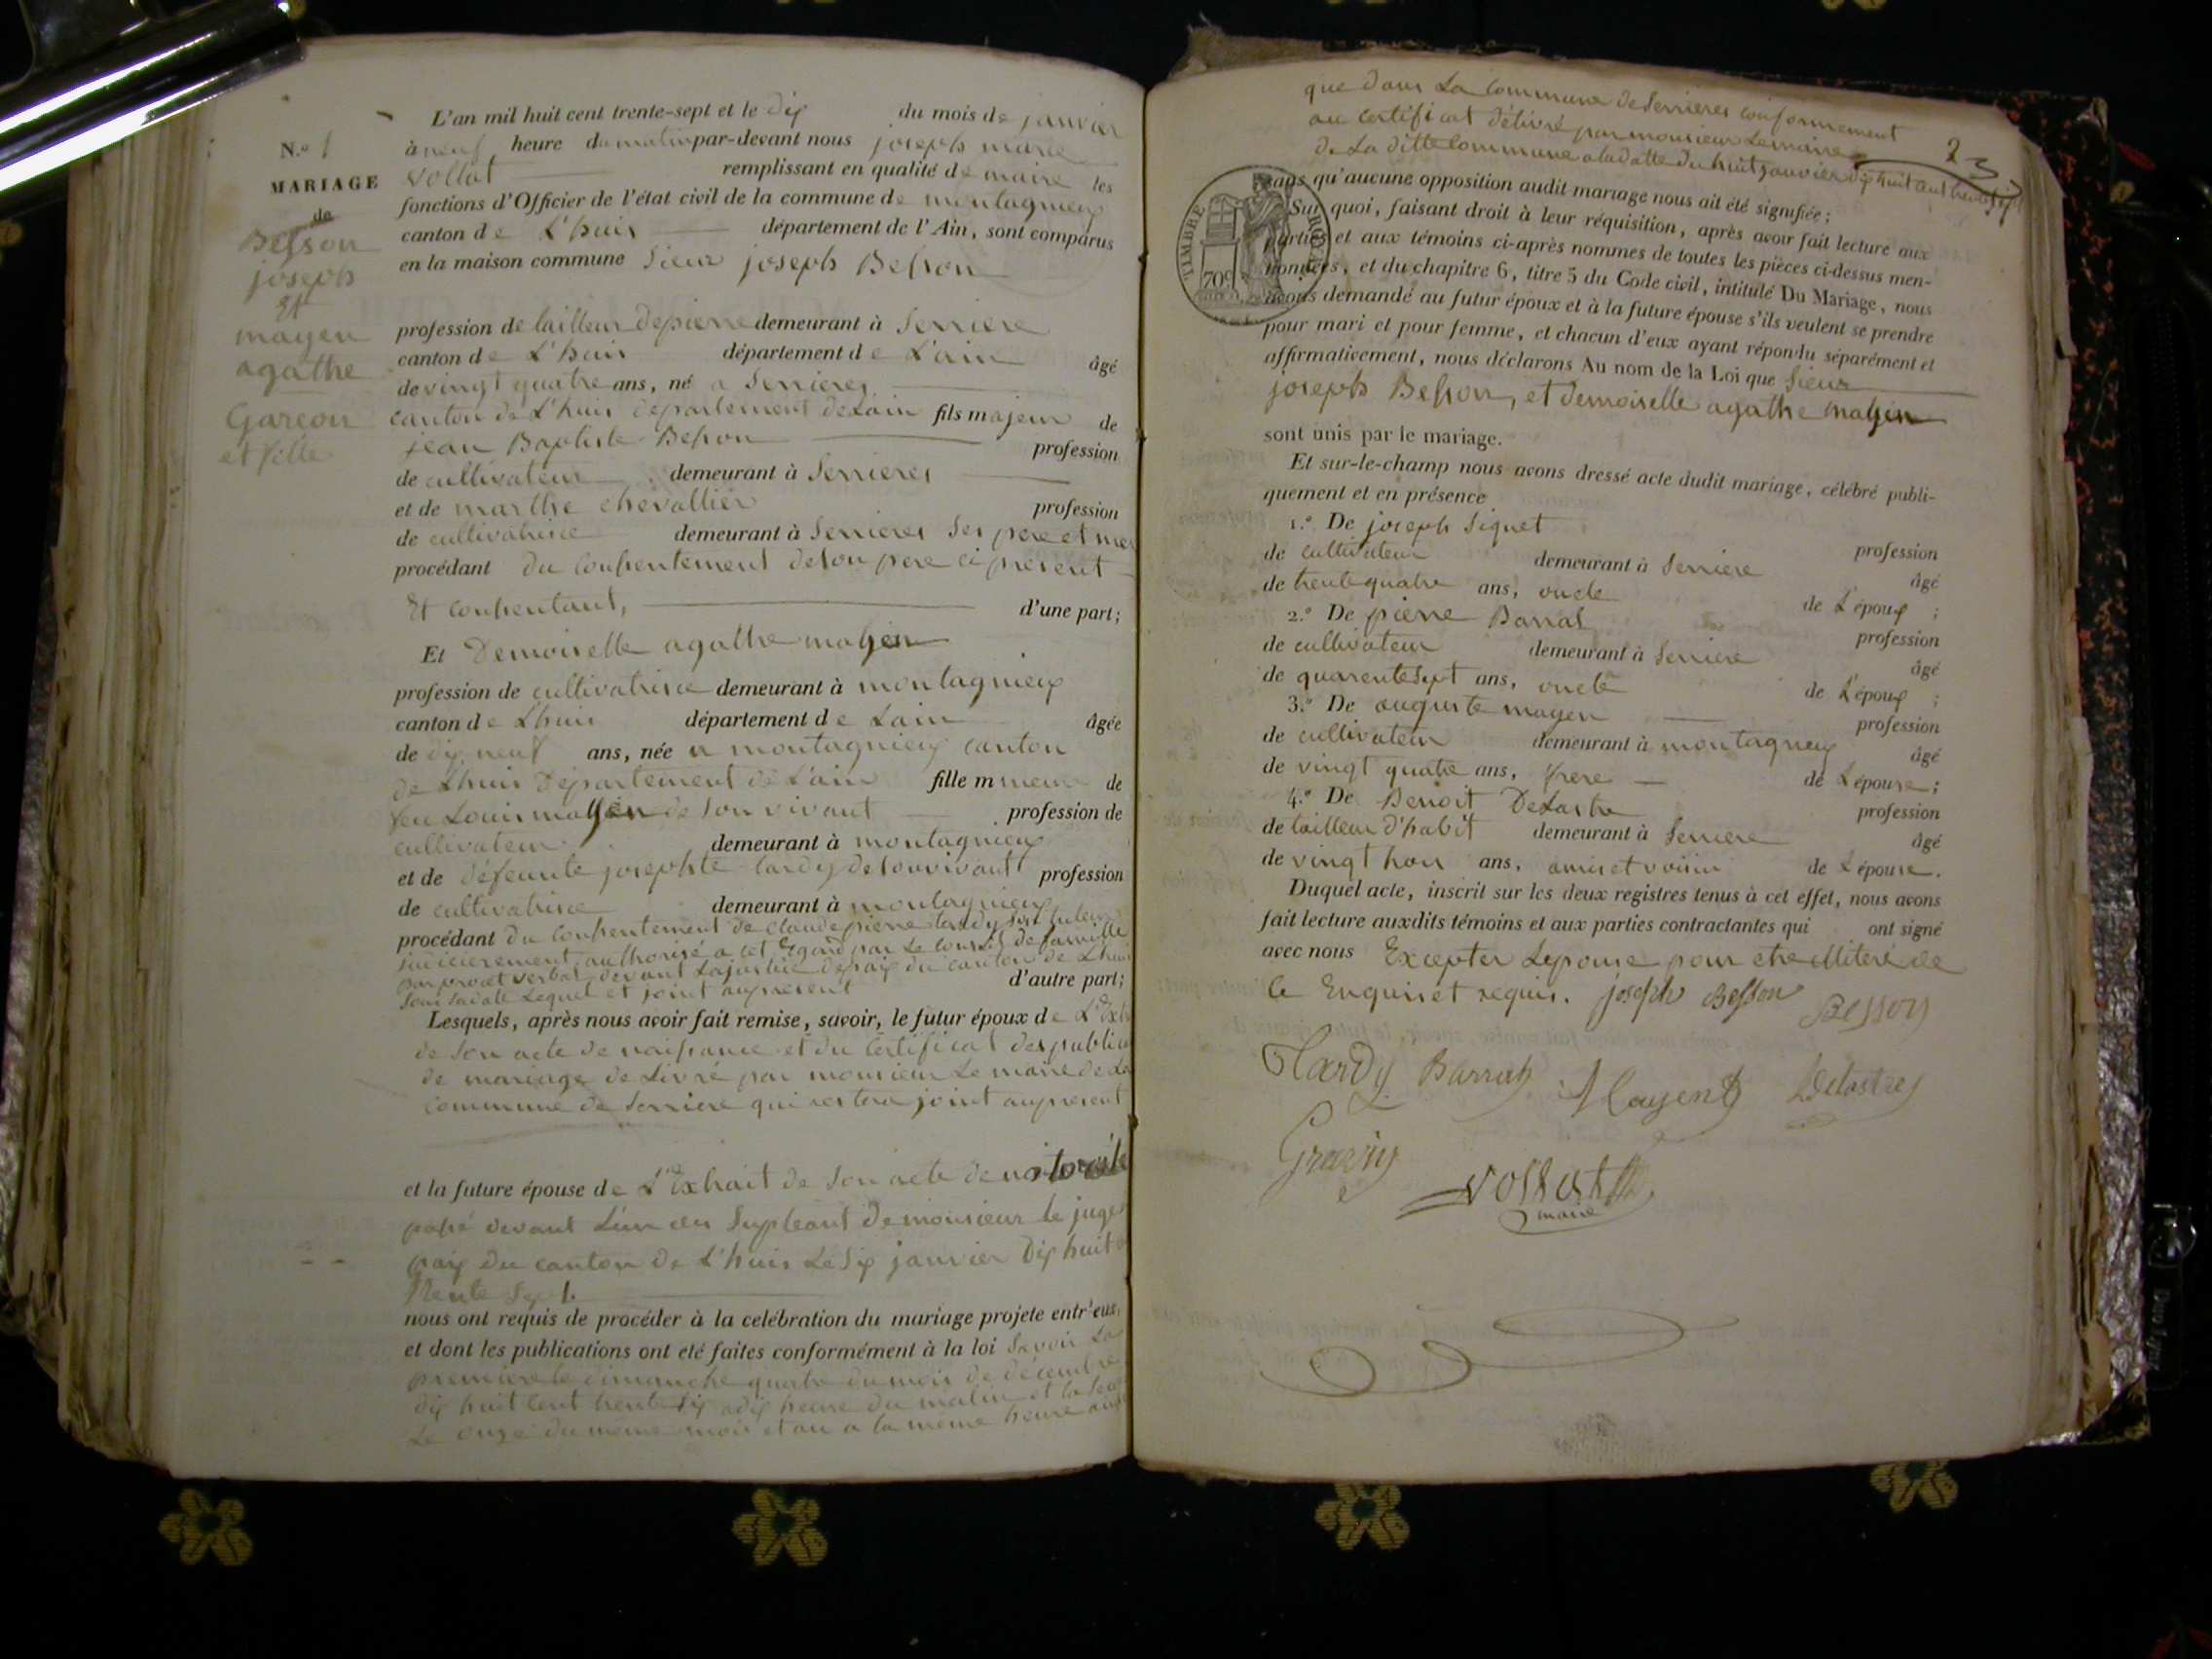 L'an mil huit cent trente-sept et le dix du mois de janvier
N.º 1
à neuf heure du matin par-devant nous joseph marie
MARIAGE
vollat remplissant en qualité de maire les
de
fonctions d'Officier de l'état civil de la commune de montagnieux
Besson
canton de L'huis département de l'Ain, sont comparus
joseph
en la maison commune Sieur joseph Besson
Et
mayen
profession de tailleur de pierre demeurant à Serriere
agathe
canton de L'huis département de L'ain âgé
de vingt quatre ans, né a Serrieres
Garçon
canton de L'huis département de Lain fils majeur de
et fille
jean Baptiste Besson profession
de cultivateur demeurant à Serrieres
et de marthe chevallier profession
de cultivatrice demeurant à Serrieres Ses pere et mere
procédant du consentement de son pere ci présent
Et consentant, d'une part;
Et Demoiselle agathe mayen
profession de cultivatrice demeurant à montagnieux
canton de Lhuis département de Lain âgée
de dix neuf ans, née a montagnieux canton
de Lhuis Département de L'ain fille mineure de
feu Louis mayen de son vivant profession de
cultivateur demeurant à montagnieux
et de défeunte josephte tardy de sonvivant profession
de cultivatrice demeurant à montagnieux
procédant du consentement de claude pierre tardy son tuteur
authorisé a cet Egard par le conseil de famille
par procet verbal devant la justice de paix du canton de Lhuis
Sous sa date Lequel et joint au present d'autre part;
Lesquels, après nous avoir fait remise, savoir, le futur époux de L'Ext
de son acte de naissance et du certificat des public
de mariage de Livré par monsieur Le maire de La
commune de Serriere qui restera joint au present
et la future épouse de L'Extrait de son acte de notoriété
passé devant L'un des Supleant de monsieur le juge
paix du canton de L'huis Le Six janvier dix huit
trente Sept.
nous ont requis de procéder à la celébration du mariage projeté entr'eux,
et dont les publications ont été faites conformément à la loi Savoir La
premiere le dimanche quatre du mois de décembre
dix huit cent trente Six a dix heure du matin et la Sec
Le onze du meme mois et an a la meme heure
que dans La Commune de Serrieres conformement
au certificat délivré par monsieur Le maire
de La ditte Commune a la datte du huit janvier dix huit cent trente Sept
2
3
TIMBRE ROYAL
70c
sans qu'aucune opposition audit mariage nous ait été signifiée;
Sur quoi, faisant droit à leur réquisition, après avoir fait lecture aux
parties et aux témoins ci-après nommés de toutes les pièces ci-dessus men-
tionnées, et du chapitre 6, titre 5 du Code civil, intitulé Du Mariage, nous
avons demandé au futur époux et à la future épouse s'ils veulent se prendre
pour mari et pour femme, et chacun d'eux ayant répondu séparément et
affirmativement, nous déclarons Au nom de la Loi que Sieur
joseph Besson, et demoiselle agathe mayen
sont unis par le mariage.
Et sur-le-champ nous avons dressé acte dudit mariage, célébré publi-
quement et en présence
1.º De joseph Siguet profession
de cultivateur demeurant à Serriere âgé
de trente quatre ans, oncle de L'époux ;
2.º De pierre Barral profession
de cultivateur demeurant à Serriere âgé
de quarente Sept ans, oncle de L'époux ;
3.º De auguste mayen profession
de cultivateur demeurant à montagnieux âgé
de vingt quatre ans, frere de L'épouse ;
4.º De Benoit Delastre profession
de tailleur d'habit demeurant à Serriere âgé
de vingt ans, amis et voisin de L'épouse.
Duquel acte, inscrit sur les deux registres tenus à cet effet, nous avons
fait lecture auxdits témoins et aux parties contractantes qui ont signé
avec nous Excepter Lepouse pour etre illiteré de
ce Enquis et requis. joseph Besson Besson
Tardy Barral Mayen Delastre
vollat
maire